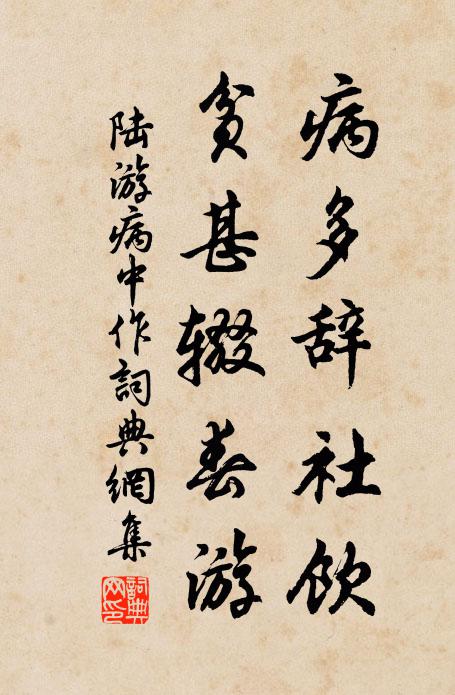 病多辞社饮
贫甚辍春游
陆游病中作詞典網集
詞典
网印